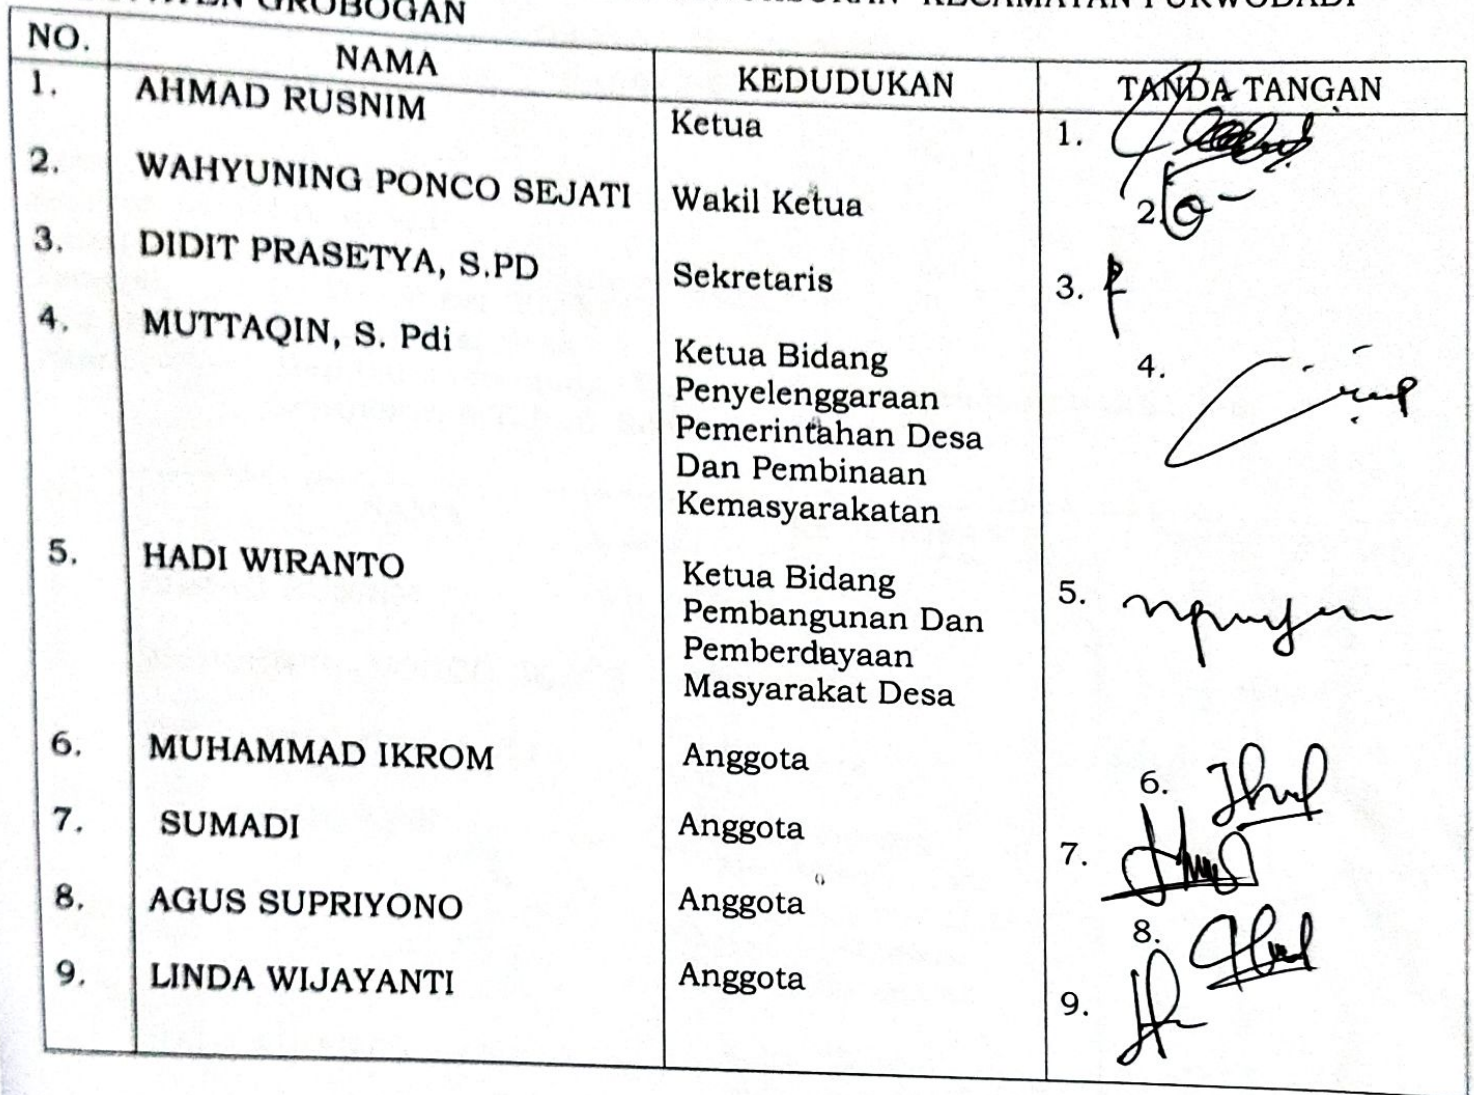 GROBOGAN
KECAMATAN PURWODADI
NO. NAMA KEDUDUKAN TANDA TANGAN
1. AHMAD RUSNIM Ketua 1.
2. WAHYUNING PONCO SEJATI Wakil Ketua 2.
3. DIDIT PRASETYA, S.PD Sekretaris 3.
4. MUTTAQIN, S. Pdi Ketua Bidang 4.
Penyelenggaraan
Pemerintahan Desa
Dan Pembinaan
Kemasyarakatan
5. HADI WIRANTO Ketua Bidang 5.
Pembangunan Dan
Pemberdayaan
Masyarakat Desa
6. MUHAMMAD IKROM Anggota 6.
7. SUMADI Anggota 7.
8. AGUS SUPRIYONO Anggota 8.
9. LINDA WIJAYANTI Anggota 9.